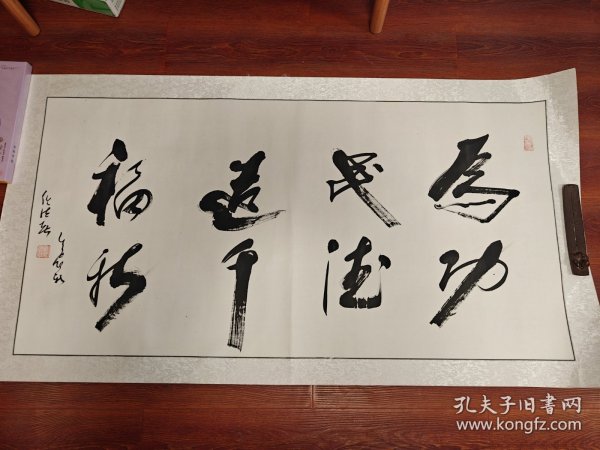 為功
民德
造千
福秋
孔夫子旧书网
www.kongfz.com